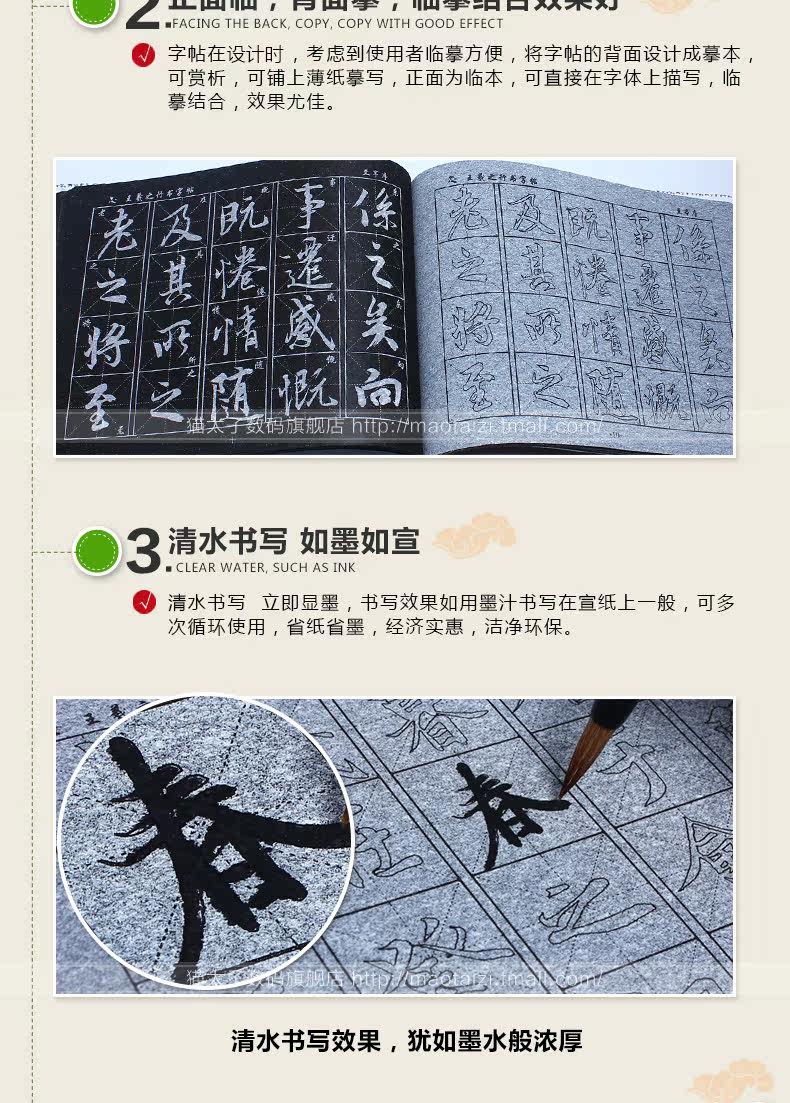 2.
正面临，背面摹，临摹结合效果好
FACING THE BACK, COPY, COPY WITH GOOD EFFECT
字帖在设计时，考虑到使用者临摹方便，将字帖的背面设计成摹本，
可赏析，可铺上薄纸摹写，正面为临本，可直接在字体上描写，临
摹结合，效果尤佳。
王羲之行书字帖
老 及 既 事 係
之 其 惓 遷 之
将 所 情 感 矣
至 之 随 慨 向
王羲之行书字帖
老 及 既 事 係
之 其 惓 遷 之
将 所 情 感 矣
至 之 随 慨 向
猫太子数码旗舰店 http://maotaizi.tmall.com/
3.
清水书写 如墨如宣
CLEAR WATER, SUCH AS INK
清水书写 立即显墨，书写效果如用墨汁书写在宣纸上一般，可多
次循环使用，省纸省墨，经济实惠，洁净环保。
春
春
猫太子数码旗舰店 http://maotaizi.tmall.com/
清水书写效果，犹如墨水般浓厚